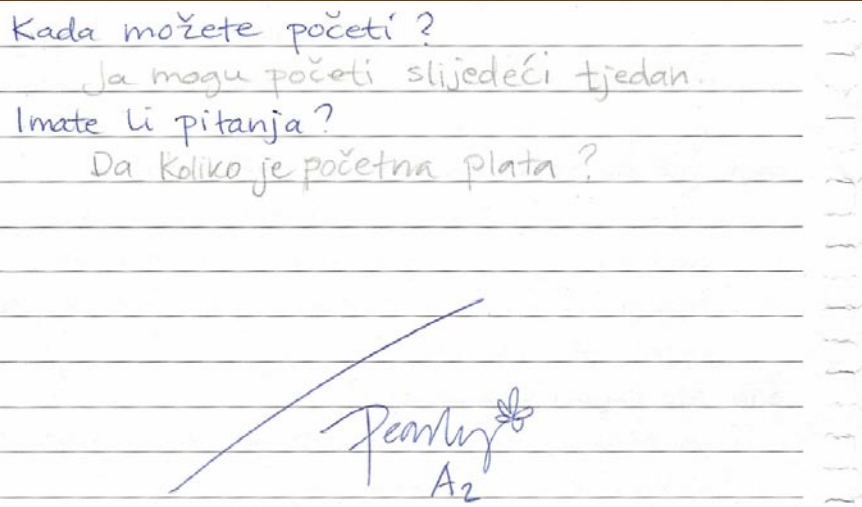 Kada možete početi?
Ja mogu početi slijedeći tjedan.
Imate li pitanja?
Da Koliko je početna plata?
Pearly
A2